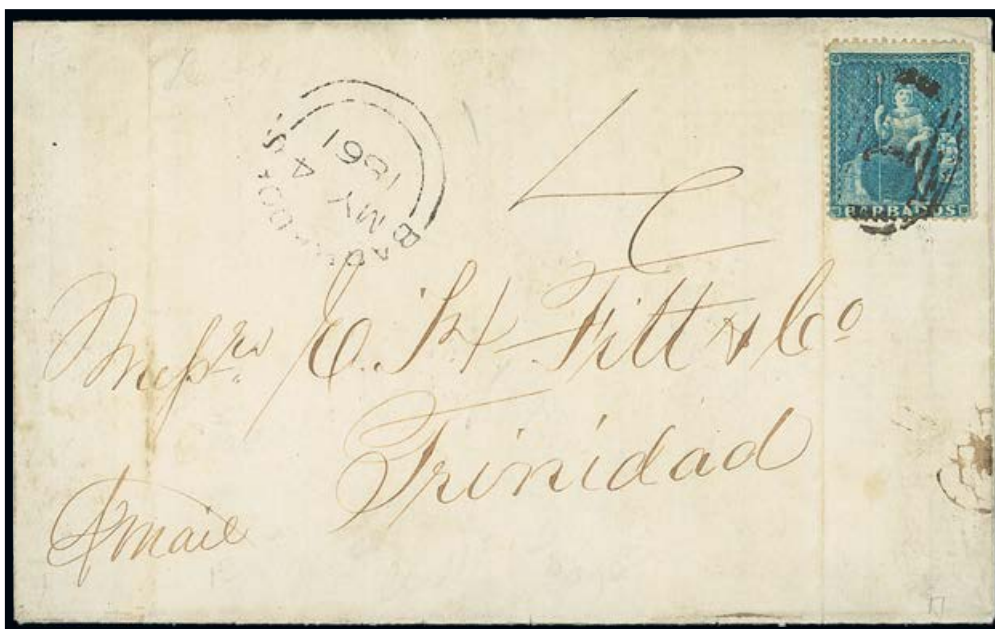 BARBADOS
MY 4
1861
4
BARBADOS
Messrs. E. H. Fitt & Co
Trinidad
p mail
17